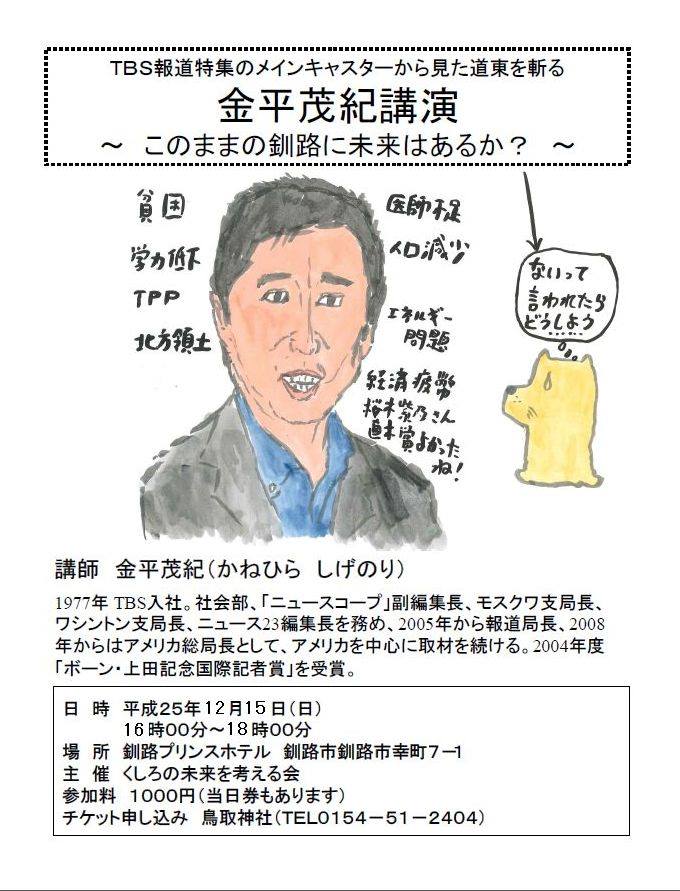 TBS報道特集のメインキャスターから見た道東を斬る
金平茂紀講演
～ このままの釧路に未来はあるか？ ～
貧困
学力低下
TPP
北方領土
医師不足
人口減少
エネルギー
問題
経済疲弊
桜木紫乃さん
直木賞よかった
ね!
ないって
言われたら
どうしよう
講師 金平茂紀(かねひら しげのり)
1977年 TBS入社。社会部、「ニュースコープ」副編集長、モスクワ支局長、
ワシントン支局長、ニュース23編集長を務め、2005年から報道局長、2008
年からはアメリカ総局長として、アメリカを中心に取材を続ける。2004年度
「ボーン・上田記念国際記者賞」を受賞。
日 時 平成25年12月15日(日)
16時00分～18時00分
場 所 釧路プリンスホテル 釧路市釧路市幸町7－1
主 催 くしろの未来を考える会
参加料 1000円(当日券もあります)
チケット申し込み 鳥取神社(TEL0154－51－2404)